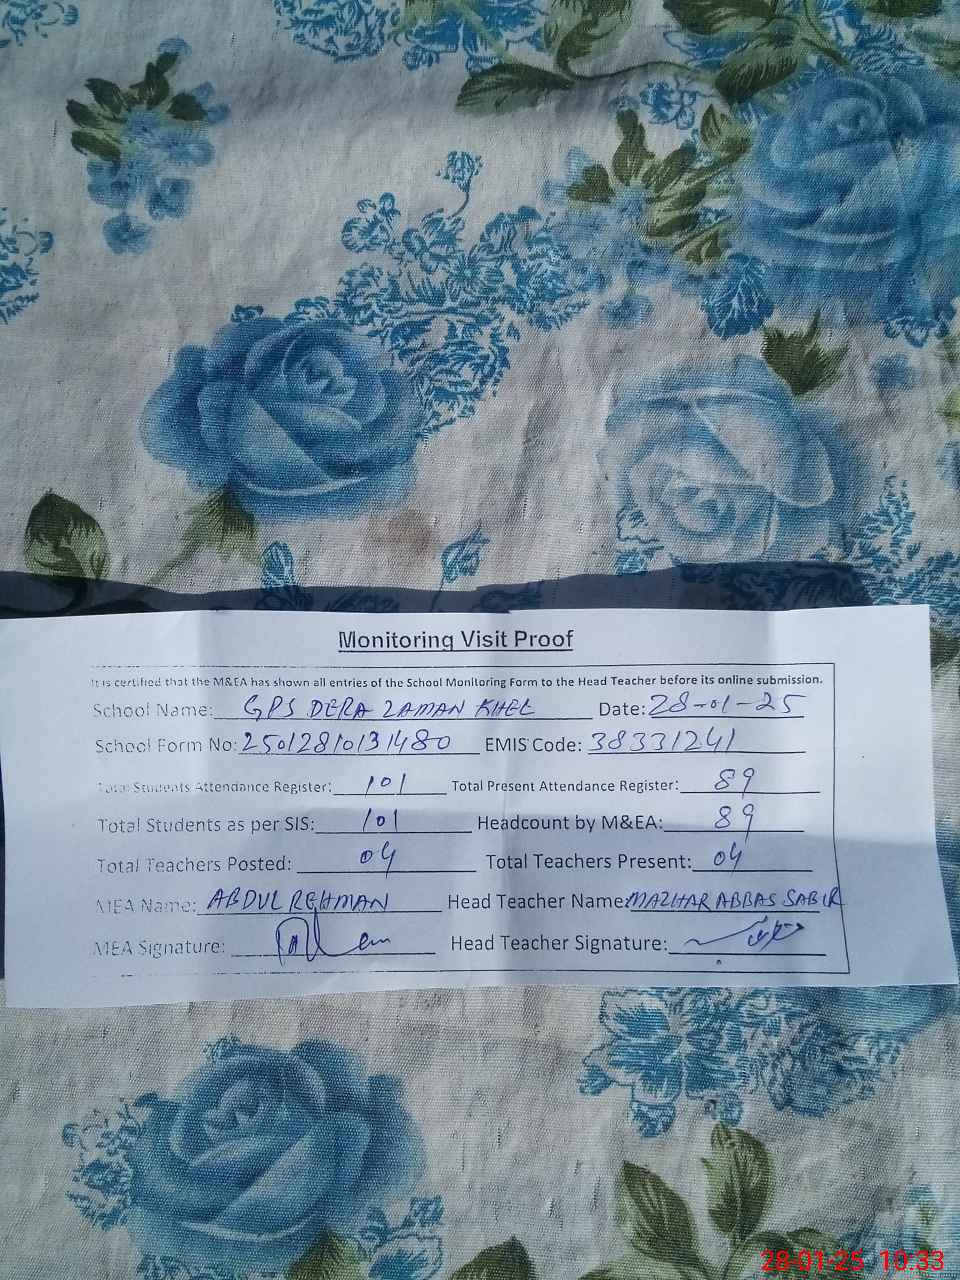 Monitoring Visit Proof
It is certified that the M&EA has shown all entries of the School Monitoring Form to the Head Teacher before its online submission.
School Name: GPS DERA ZAMAN KHEL Date: 28-01-25
School Form No: 25012810131480 EMIS Code: 38331241
Total Students Attendance Register: 101 Total Present Attendance Register: 89
Total Students as per SIS: 101 Headcount by M&EA: 89
Total Teachers Posted: 04 Total Teachers Present: 04
MEA Name: ABDUL REHMAN Head Teacher Name: MAZHAR ABBAS SABIR
MEA Signature: Head Teacher Signature:
28-01-25 10:33